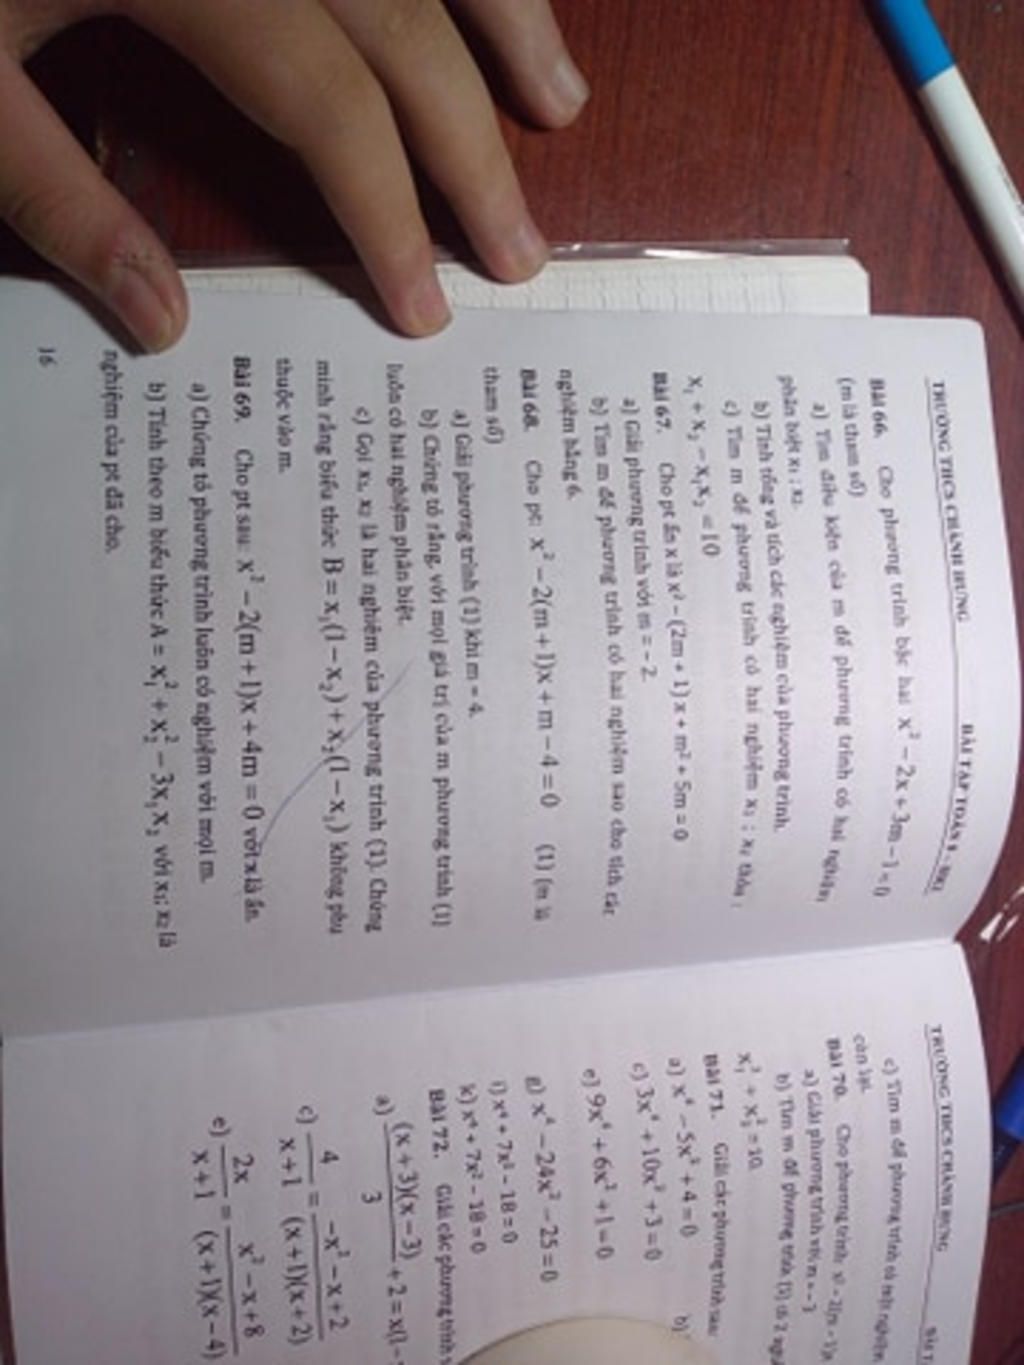 TRƯỜNG THCS CHÁNH HƯNG BÀI TẬP TOÁN 9 - HK2
Bài 66. Cho phương trình bậc hai x² − 2x + 3m − 1 = 0
(m là tham số)
a) Tìm điều kiện của m để phương trình có hai nghiệm
phân biệt x₁ ; x₂.
b) Tính tổng và tích các nghiệm của phương trình.
c) Tìm m để phương trình có hai nghiệm x₁ ; x₂ thỏa :
x₁ + x₂ − x₁x₂ = 10
Bài 67. Cho pt ẩn x là x² - (2m + 1) x + m² + 5m = 0
a) Giải phương trình với m = - 2.
b) Tìm m để phương trình có hai nghiệm sao cho tích các
nghiệm bằng 6.
Bài 68. Cho pt: x² − 2(m + 1)x + m − 4 = 0 (1) (m là
tham số)
a) Giải phương trình (1) khi m = 4.
b) Chứng tỏ rằng, với mọi giá trị của m phương trình (1)
luôn có hai nghiệm phân biệt.
c) Gọi x₁, x₂ là hai nghiệm của phương trình (1). Chứng
minh rằng biểu thức B = x₁(1 − x₂) + x₂(1 − x₁) không phụ
thuộc vào m.
Bài 69. Cho pt sau: x² − 2(m + 1)x + 4m = 0 với x là ẩn.
a) Chứng tỏ phương trình luôn có nghiệm với mọi m.
b) Tính theo m biểu thức A = x₁² + x₂² − 3x₁x₂ với x₁; x₂ là
nghiệm của pt đã cho.
16
TRƯỜNG THCS CHÁNH HƯNG
c) Tìm m để phương trình có một nghiệm
còn lại.
Bài 70. Cho phương trình:
a) Giải phương trình với m = - 3
b) Tìm m để phương trình (1) có 2
x₁² + x₂² = 10.
Bài 71. Giải các phương trình sau:
a) x⁴ − 5x² + 4 = 0 b)
c) 3x⁴ + 10x² + 3 = 0
e) 9x⁴ + 6x² + 1 = 0
g) x⁴ − 24x² − 25 = 0
i) x⁴ + 7x² - 18 = 0
k) x⁴ + 7x² - 18 = 0
Bài 72. Giải các phương trình
a) (x + 3)(x − 3)/3 + 2 = x(1 −
c) 4/(x + 1) = (−x² − x + 2)/((x + 1)(x + 2))
e) 2x/(x + 1) = (x² − x + 8)/((x + 1)(x − 4))